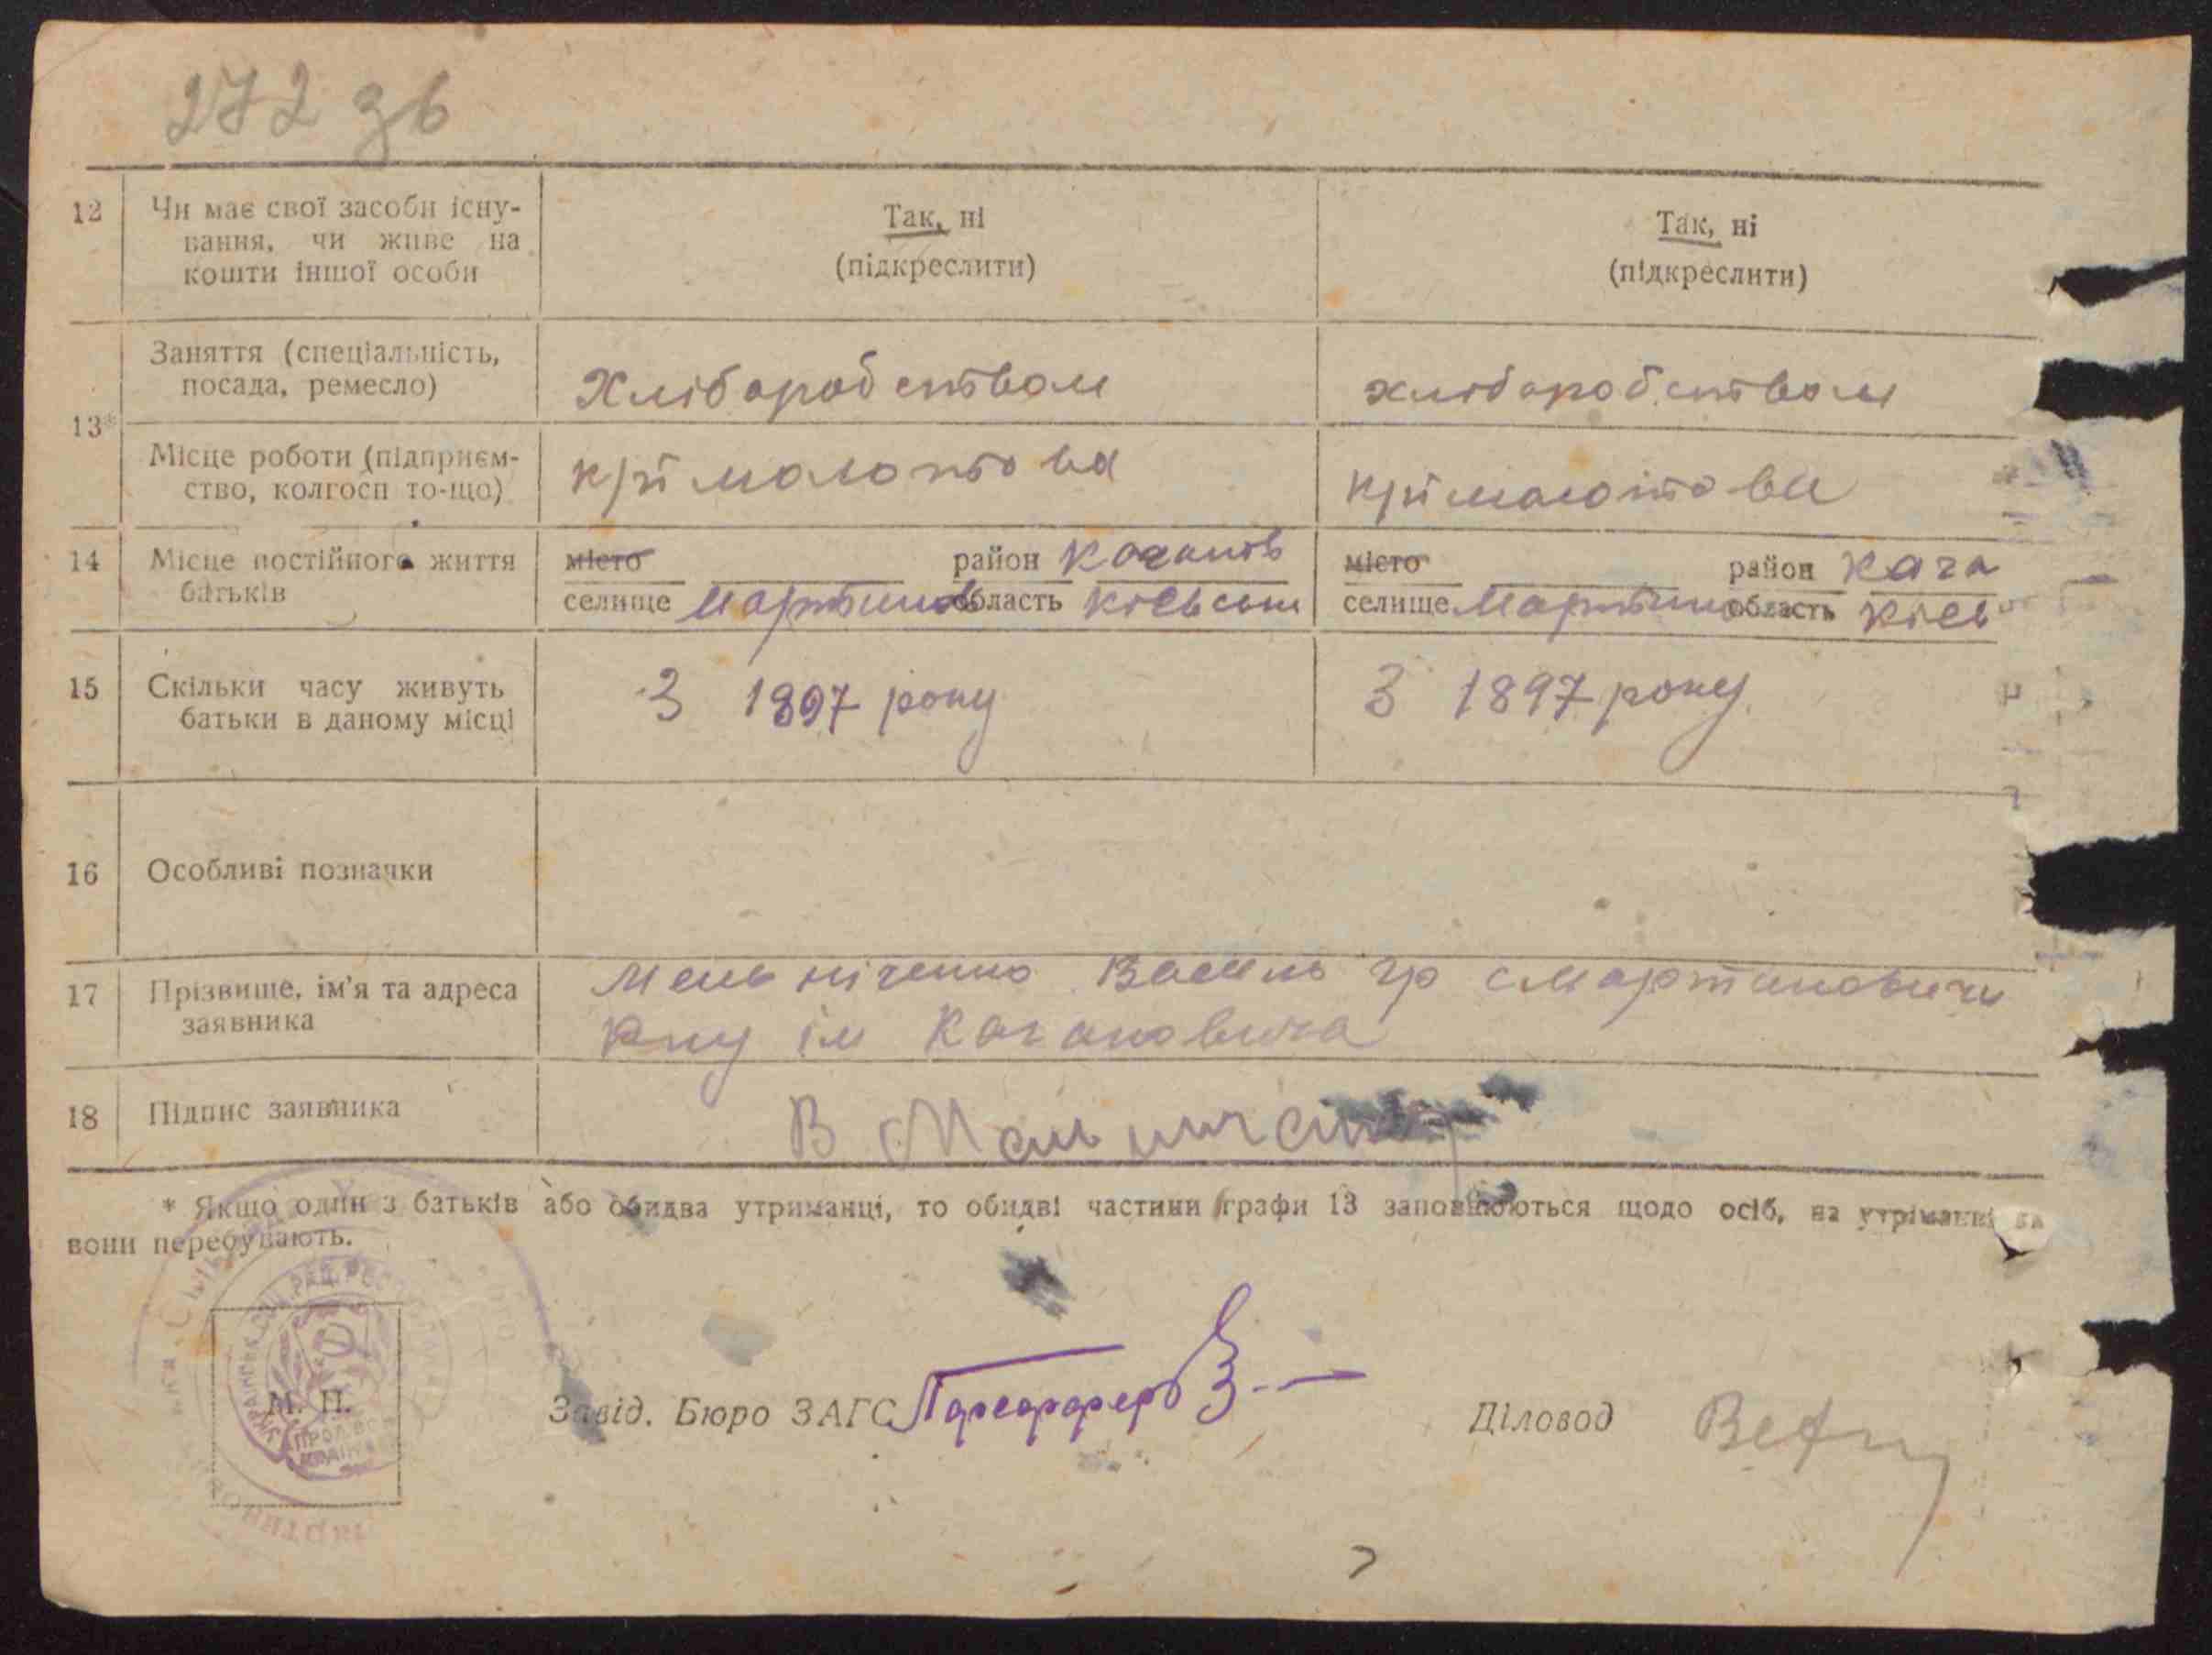 272 зв
12 Чи має свої засоби існу-
вання, чи живе на
кошти іншої особи
Так, ні
(підкреслити)
Так, ні
(підкреслити)
13*
Заняття (спеціальність,
посада, ремесло)
Хліборобством
хліборобством
Місце роботи (підприєм-
ство, колгосп то-що)
молотова
молотова
14 Місце постійного життя
батьків
місто район Каганов
селище Мартинов область Київськи
місто район Кага
селище Мартинов область Київ
15 Скільки часу живуть
батьки в даному місці
З 1897 року
З 1897 року
16 Особливі позначки
17 Прізвище, ім'я та адреса
заявника
Мельніченко Василь гр с Мартиновичи
ім Кагановича
18 Підпис заявника
В Мельничен
* Якщо один з батьків або обидва утриманці, то обидві частини графи 13 заповнюються щодо осіб, на утриманні
вони перебувають.
М. П.
Завід. Бюро ЗАГС
Діловод